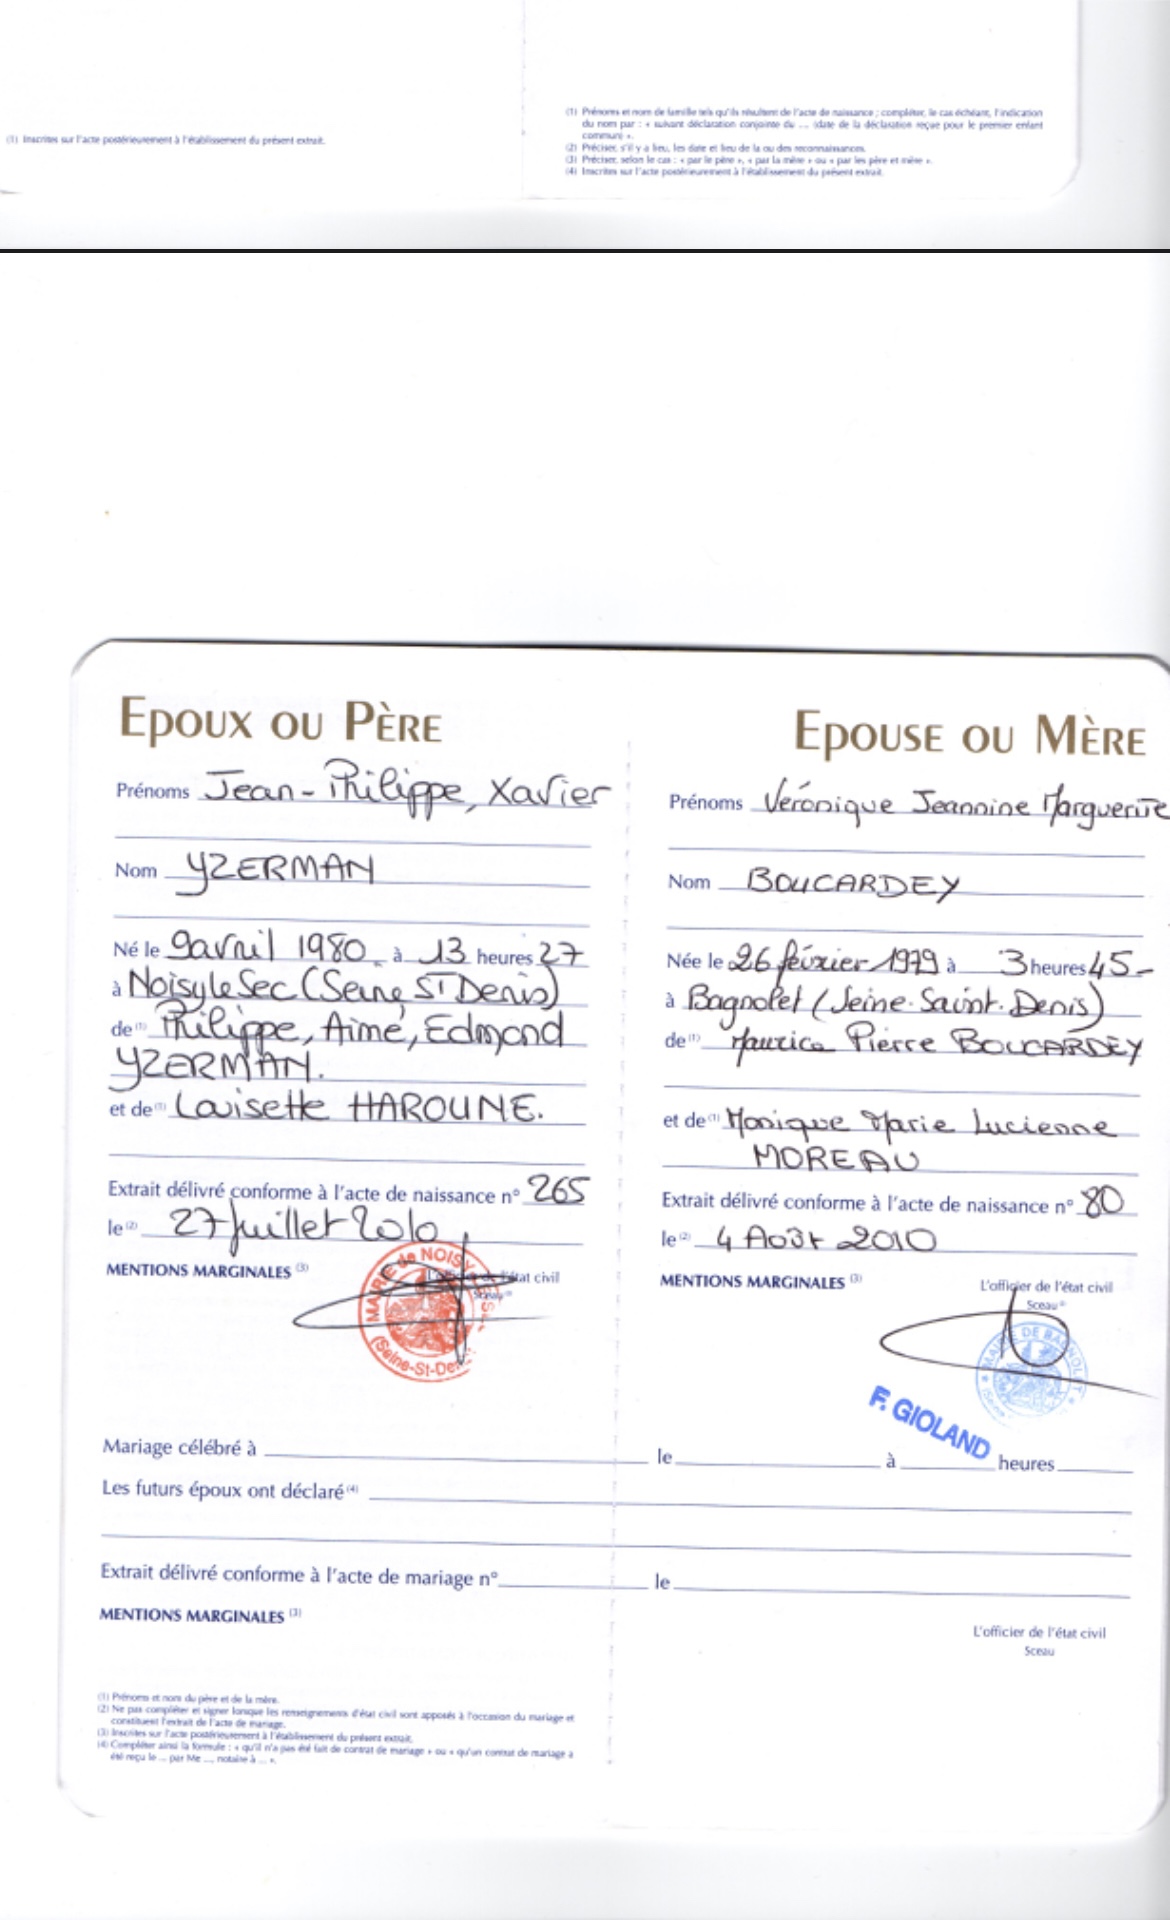 (1) Inscrites sur l'acte postérieurement à l'établissement du présent extrait.
(1) Prénoms et nom de famille tels qu'ils résultent de l'acte de naissance ; compléter, le cas échéant, l'indication
du nom par : « suivant déclaration conjointe du ... (date de la déclaration reçue pour le premier enfant
commun) ».
(2) Préciser, s'il y a lieu, les date et lieu de la ou des reconnaissances.
(3) Préciser, selon le cas : « par le père », « par la mère » ou « par les père et mère ».
(4) Inscrites sur l'acte postérieurement à l'établissement du présent extrait.
EPOUX OU PÈRE
Prénoms Jean-Philippe, Xavier
Nom YZERMAN
Né le 9 avril 1980 à 13 heures 27
à Noisy le Sec (Seine St Denis)
de (1) Philippe, Aimé, Edmond
YZERMAN.
et de (1) Louisette HAROUNE.
Extrait délivré conforme à l'acte de naissance n° 265
le (2) 27 Juillet 2010
MENTIONS MARGINALES (3)
L'officier de l'état civil
Sceau
MAIRIE de NOISY
(Seine-St-De
EPOUSE OU MÈRE
Prénoms Véronique Jeannine Marguerite
Nom BOUCARDEY
Née le 26 février 1979 à 3 heures 45 -
à Bagnolet (Seine-Saint-Denis)
de (1) Maurice Pierre BOUCARDEY
et de (1) Monique Marie Lucienne
MOREAU
Extrait délivré conforme à l'acte de naissance n° 80
le (2) 4 Août 2010
MENTIONS MARGINALES (3)
L'officier de l'état civil
Sceau
MAIRIE DE BAGNOLET
F. GIOLAND
Mariage célébré à le à heures
Les futurs époux ont déclaré (4)
Extrait délivré conforme à l'acte de mariage n° le
MENTIONS MARGINALES (3)
L'officier de l'état civil
Sceau
(1) Prénoms et nom du père et de la mère.
(2) Ne pas compléter et signer lorsque les renseignements d'état civil sont apposés à l'occasion du mariage et
constituent l'extrait de l'acte de mariage.
(3) Inscrites sur l'acte postérieurement à l'établissement du présent extrait.
(4) Compléter ainsi la formule : « qu'il n'a pas été fait de contrat de mariage » ou « qu'un contrat de mariage a
été reçu le ... par Me ..., notaire à ... ».